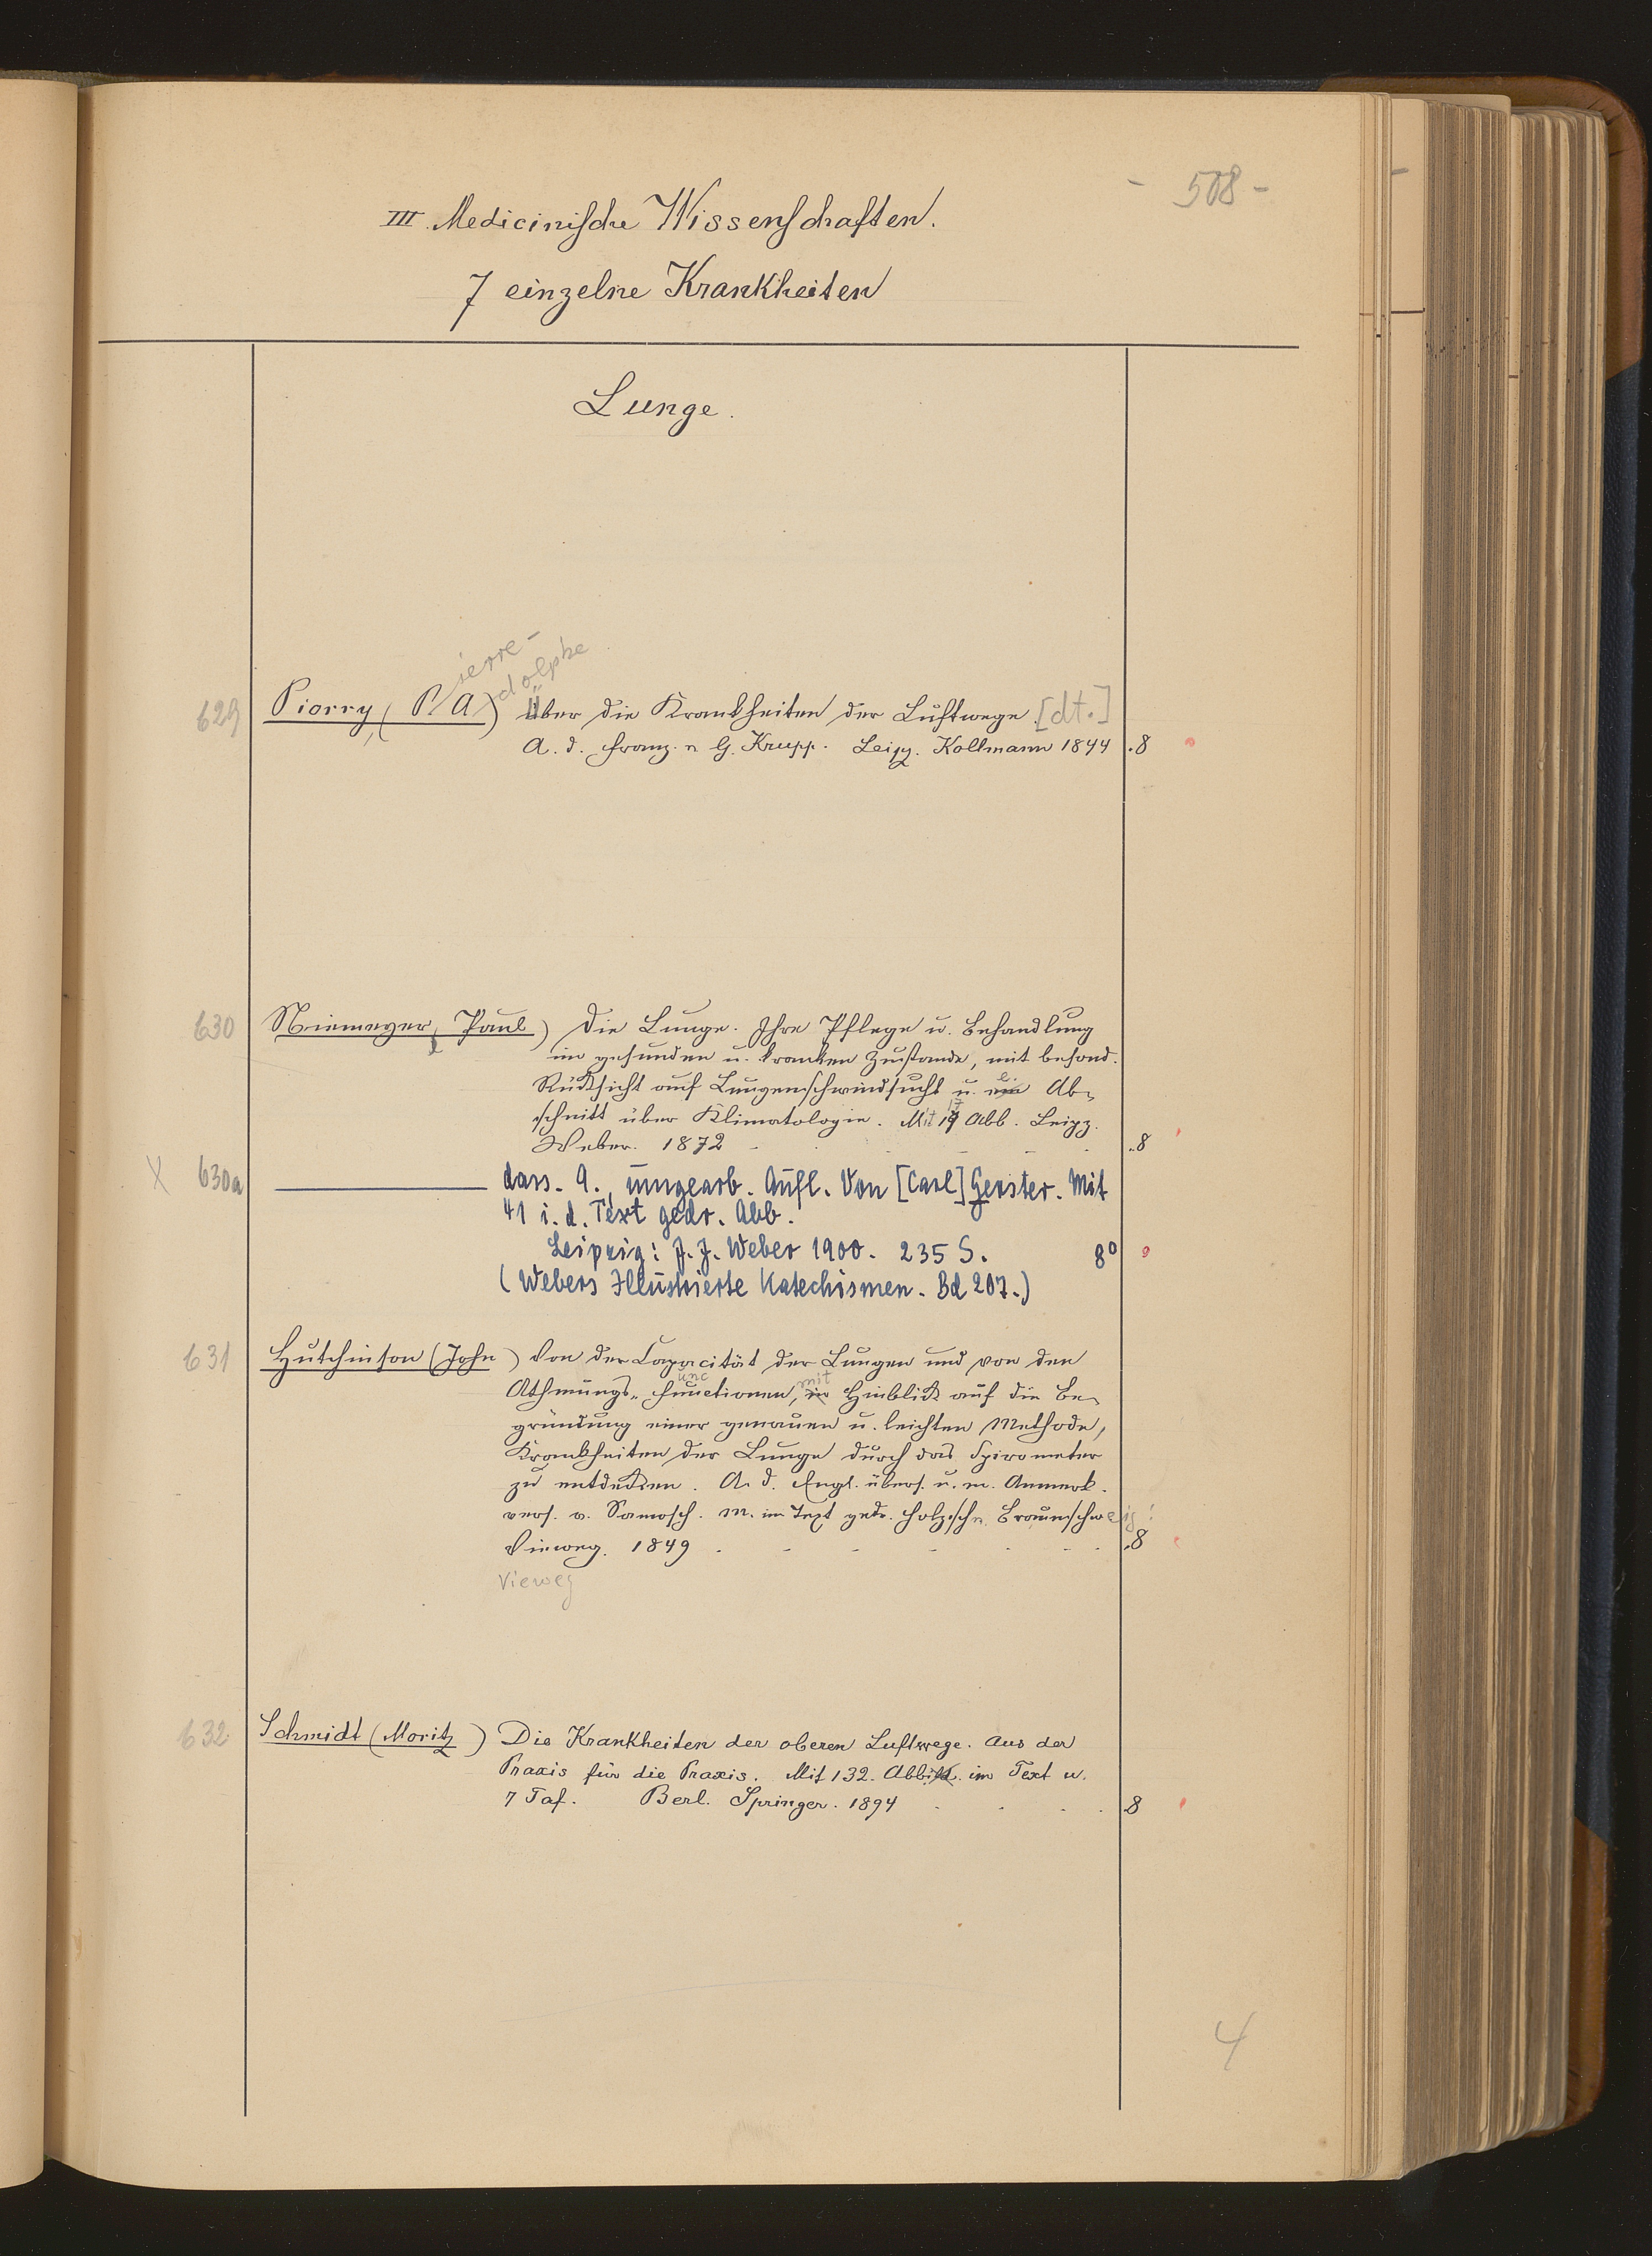 - 508 -
III. Medicinische Wissenschaften.
7 einzelne Krankheiten
Lunge.
ierre-
dolphe
629 Piorry, (P. A.) Über die Krankheiten der Luftwege. [dt.]
A. d. Franz. v. G. Krupp. Leipz. Kollmann 1844 .8
630 Niemeyer, Paul) Die Lunge. Ihre Pflege u. Behandlung
im gesunden u. kranken Zustande, mit besond.
Rücksicht auf Lungenschwindsucht u. ein Ab-
schnitt über Klimatologie. Mit Abb. Leipz.
Weber. 1872 .8
X 630a dass. 9., umgearb. Aufl. Von [Carl] Gerster. Mit
41 i. d. Text gedr. Abb.
Leipzig: J. J. Weber 1900. 235 S. 8°
(Webers Illustrierte Katechismen. Bd 207.)
631 Hutchinson (John) Von der Capacität der Lungen und von den
unc mit
Athmungs-Functionen, in Hinblick auf die Be-
gründung einer genauen u. leichten Methode,
Krankheiten der Lunge durch das Spirometer
zu entdecken. A. d. Engl. übers. u. m. Anmerk.
vers. v. Samosch. M. im Text gedr. Holzschn. Braunschweig:
Vieweg. 1849 .8
Vieweg
632 Schmidt (Moritz) Die Krankheiten der oberen Luftwege. Aus der
Praxis für die Praxis. Mit 132. Abbild. im Text u.
7 Taf. Berl. Springer. 1894 .8
4